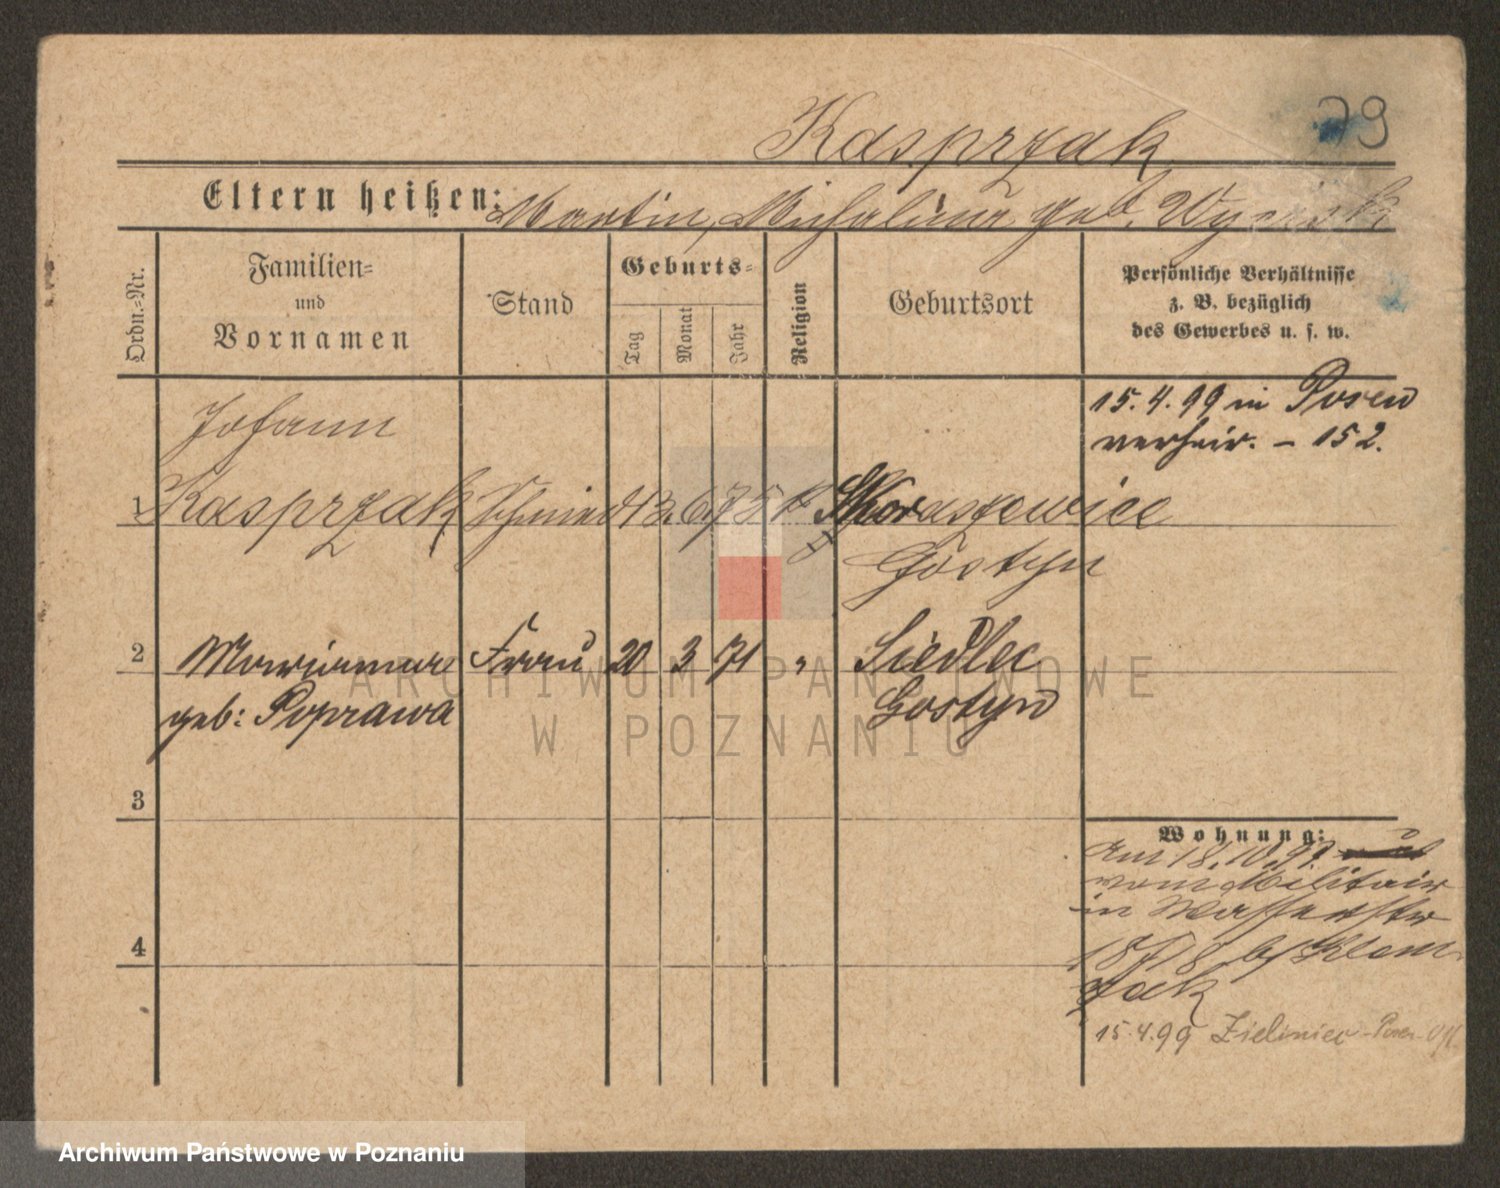 79
Kasprzak
Eltern heißen: Martin, Michalina geb.
Ordn.-Nr.
Familien-
und
Vornamen
Stand
Geburts-
Tag
Monat
Jahr
Religion
Geburtsort
Persönliche Verhältnisse
z. B. bezüglich
des Gewerbes u. s. w.
15.4.99 in Posen
verheir. – 152.
Johann
1 Kasprzak Schmied 13. 6. 75 k Skoraszewice
Gostyn
2 Marianna Frau 20 3 71 " Siedlec
geb: Poprawa Gostyn
3
Wohnung:
am 18.10.97.
vom Militair
in Wasserstr
4
17/18 b/
15.4.99 Zieliniec - Posen Ost
ARCHIWUM PAŃSTWOWE
W POZNANIU
Archiwum Państwowe w Poznaniu